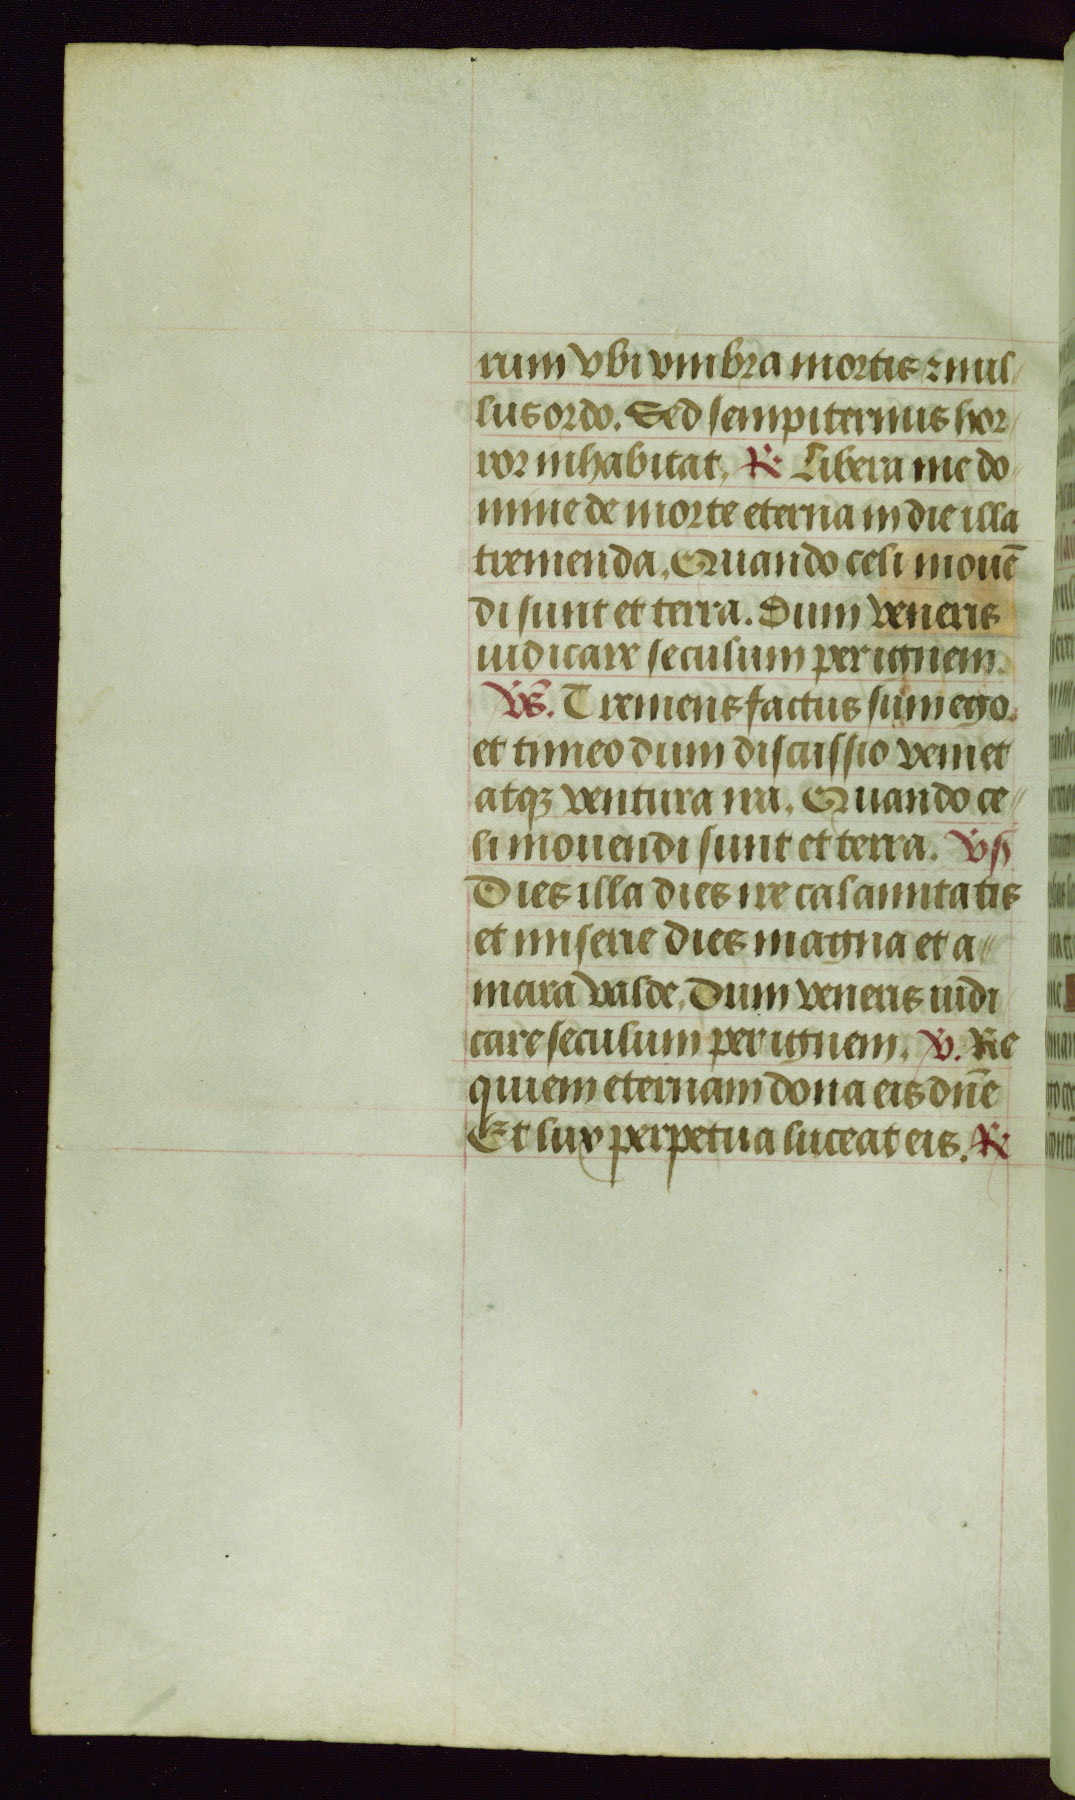 rum vbi vmbra mortis ⁊ nul
lus ordo. Sed sempiternus hor
ror inhabitat. ℟ Libera me do
mine de morte eterna in die illa
tremenda. Quando celi mouē
di sunt et terra. Dum veneris
iudicare seculum per ignem.
Vs. Tremens factus sum ego
et timeo dum discussio veniet
atqꝫ ventura ira. Quando ce
li mouendi sunt et terra. Vs
Dies illa dies ire calamitatis
et miserie dies magna et a
mara valde. Dum veneris iudi
care seculum per ignem. V. Re
quiem eternam dona eis dn̄e
Et lux perpetua luceat eis. ℟